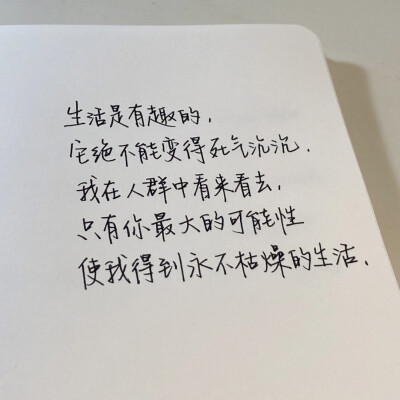 生活是有趣的，
它绝不能变得死气沉沉．
我在人群中看来看去，
只有你最大的可能性
使我得到永不枯燥的生活．